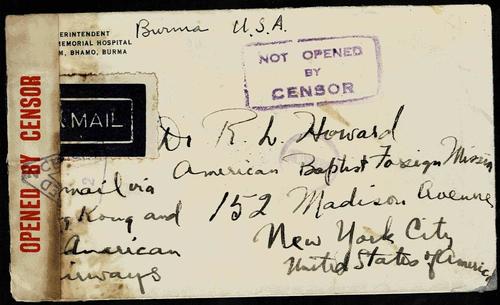 ERINTENDENT
MEMORIAL HOSPITAL
M, BHAMO, BURMA
Burma U.S.A.
NOT OPENED
BY
CENSOR
OPENED BY CENSOR
MAIL
Dr R. L. Howard
American Baptist Foreign Mission
152 Madison Avenue
New York City
United States of America
mail via
g Kong and
Anarican
irways